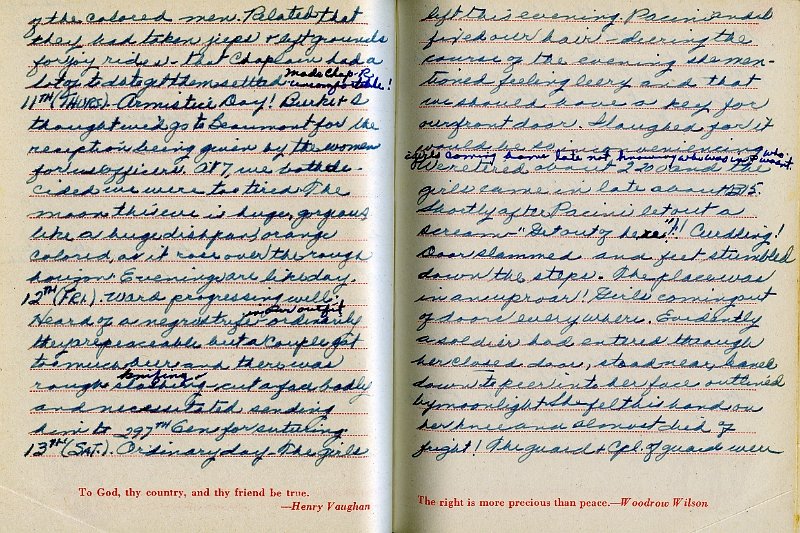 of the colored men. Related that
they had taken jeeps + left grounds
for joy rides - that Chaplain had a
lot to do to get them settled made Chap. R. uncomfortable!
11TH (THURS). Armistice Day! Burke + I
thought we'd go to Beaumont for the
reception being given by the women
for us officers. At 7, we both de-
cided we were too tired. The
moon this eve is huge, gorgeous
like a huge dishpan, orange
colored, as it rose over the rough
horizon. Evenings are like day.
12TH (FRI.). Ward progressing well.
Heard of a negro unit ordinarily
they're peaceable but a couple got
too much beer and there was
rough knifing + cut a face badly
and necessitated sending
him to 297TH Gen for suturing
13TH (SAT.). Ordinary day. The girls
To God, thy country, and thy friend be true.
—Henry Vaughan
left this evening. Pacini and I
fixed our hair - during the
course of the evening she men-
tioned feeling leery and that
we should have a key for
our front door. I laughed for it
would be so inconveniencing
girls coming home late not knowing who was in + wasn't.
We retired about 2200 and the
girls came in late about
Shortly after Pacini let out a
scream - "Get out of here"!!! Curdling!
Door slammed and feet stumbled
down the steps. The place was
in an uproar! Girls coming out
of doors everywhere. Evidently
a soldier had entered through
her closed door, stood near, knelt
down to peer into her face outlined
by moonlight. She felt his hand on
her knee and almost died of
fright! The guard + Cpl. of guard were
The right is more precious than peace.—Woodrow Wilson